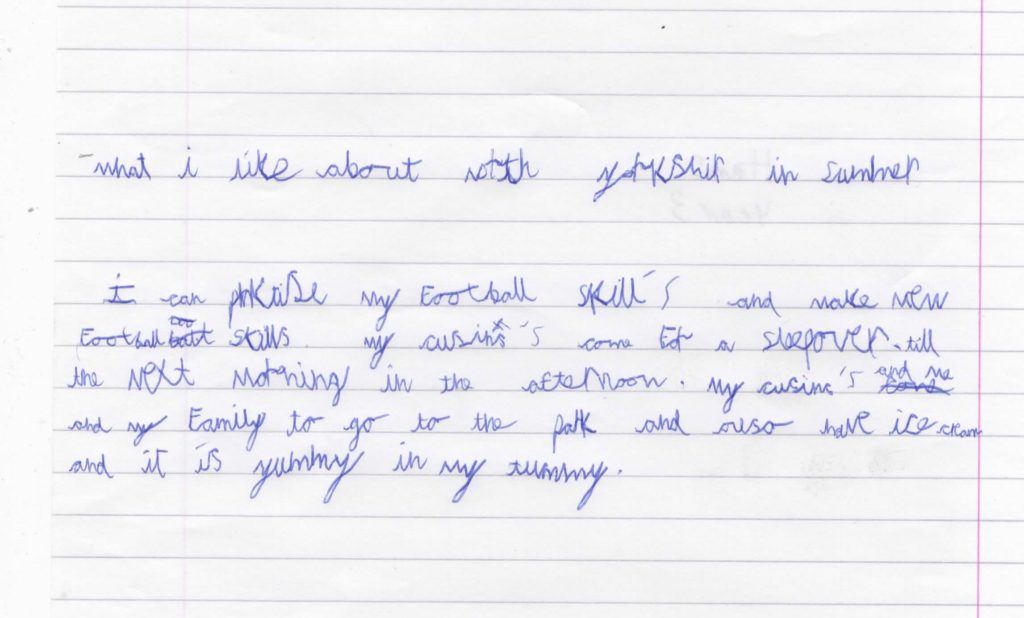 what i like about noth yorkshir in summer
I can prktise my football skill's and make new
football skills. my cusins's come for a sleepover till
the next morning in the afternoon. my cusins's and me
and my family to go to the park and also have ice cream
and it is yummy in my tummy.